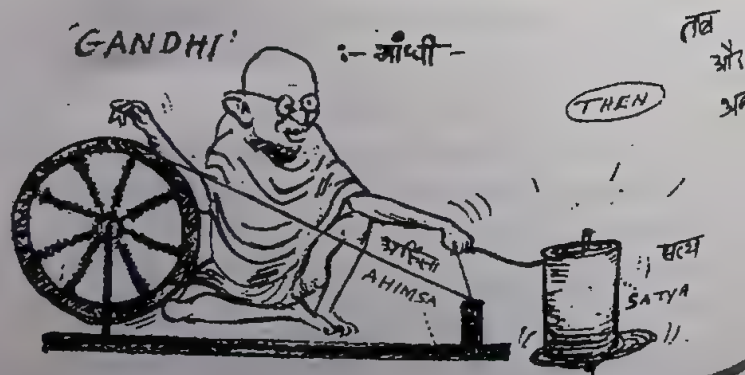 'GANDHI' :- गांधी -
तब
और
अब
THEN
अहिंसा
AHIMSA
सत्य
SATYA